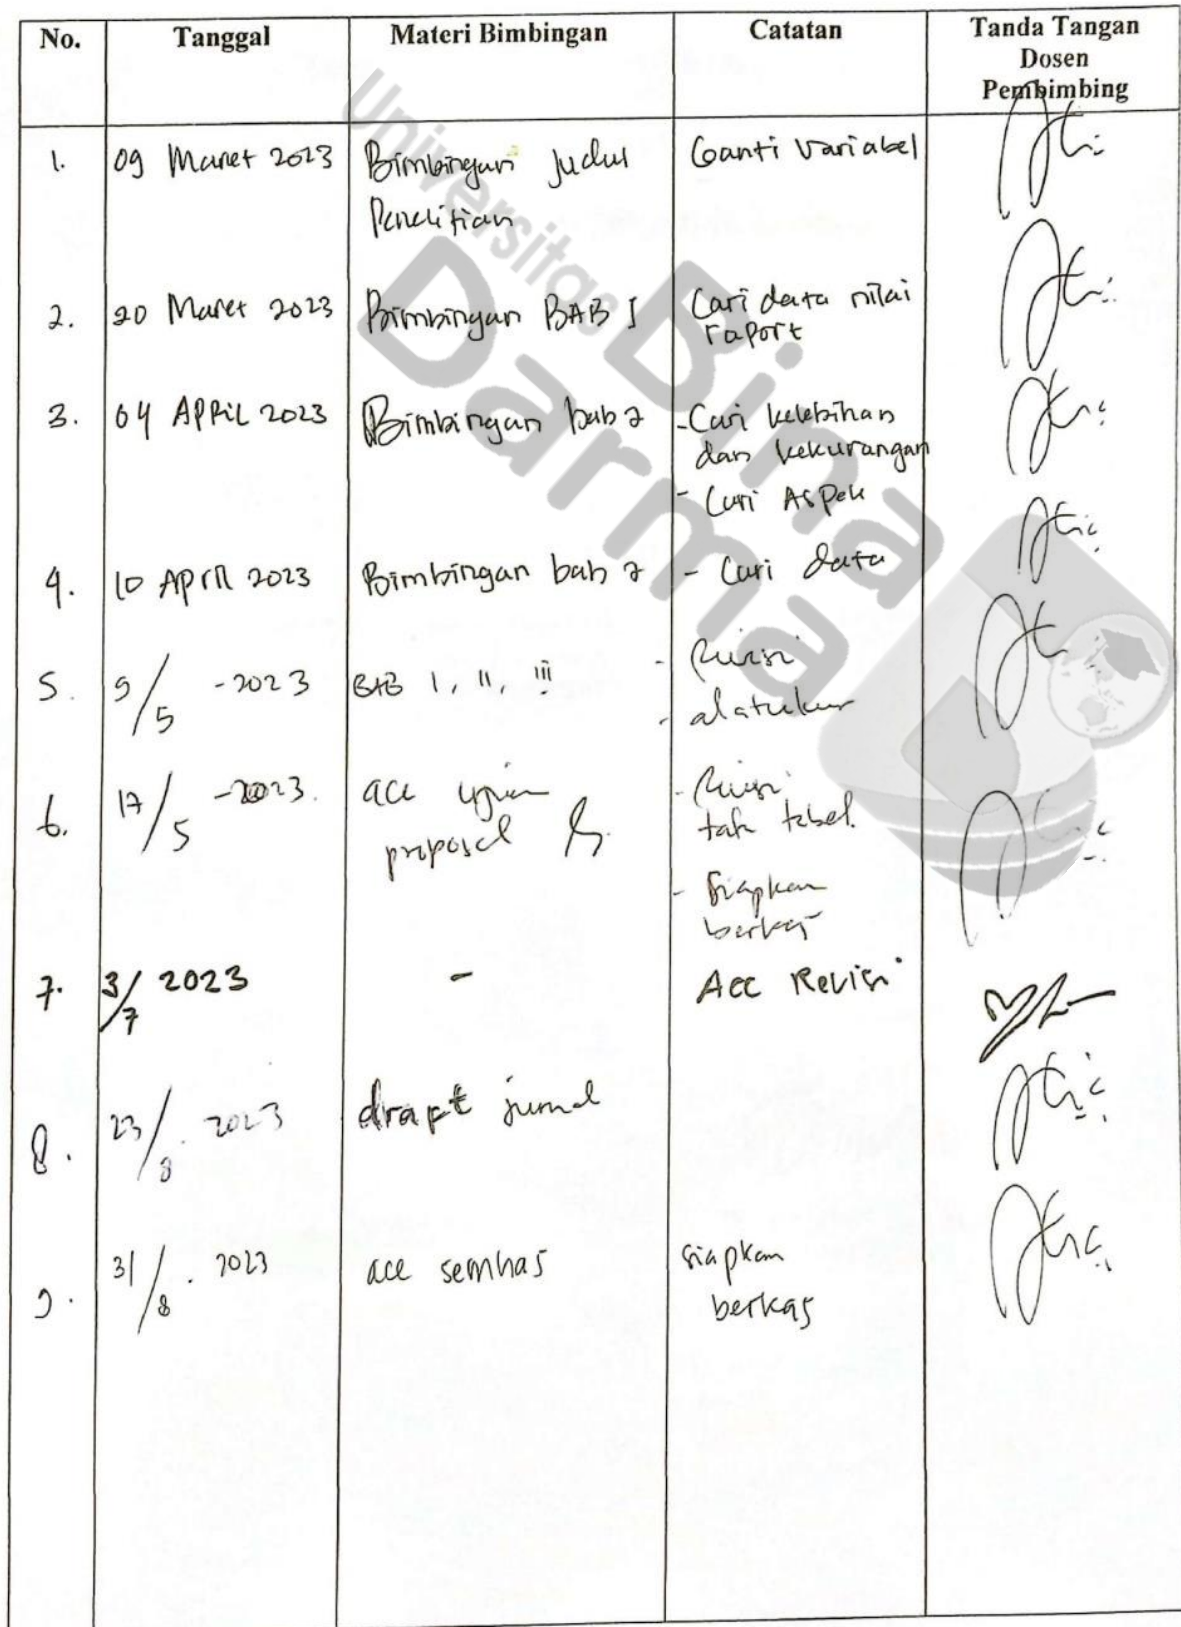 No. Tanggal Materi Bimbingan Catatan Tanda Tangan
Dosen
Pembimbing
Universitas
Bina
Darma
1. 09 Maret 2023 Bimbingan Judul Ganti Variabel
Penelitian
2. 20 Maret 2023 Bimbingan BAB I Cari data nilai
raport
3. 04 APRIL 2023 Bimbingan bab 2 - Cari kelebihan
dan kekurangan
- Cari Aspek
4. 10 April 2023 Bimbingan bab 2 - Cari data
5. 9/5 - 2023 BAB I, II, III - Revisi
- alat ukur
6. 17/5 - 2023. acc ujian - Revisi
proposal tabel.
- Siapkan
berkas
7. 3/7 2023 - Acc Revisi
8. 23/8. 2023 draft jurnal
9. 31/8. 2023 acc semhas siapkan
berkas